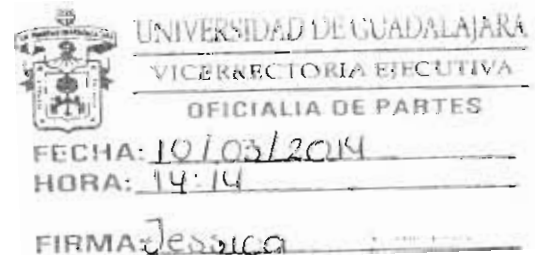 UNIVERSIDAD DE GUADALAJARA
VICERRECTORIA EJECUTIVA
OFICIALIA DE PARTES
FECHA: 10/03/2014
HORA: 14:14
FIRMA: Jessica